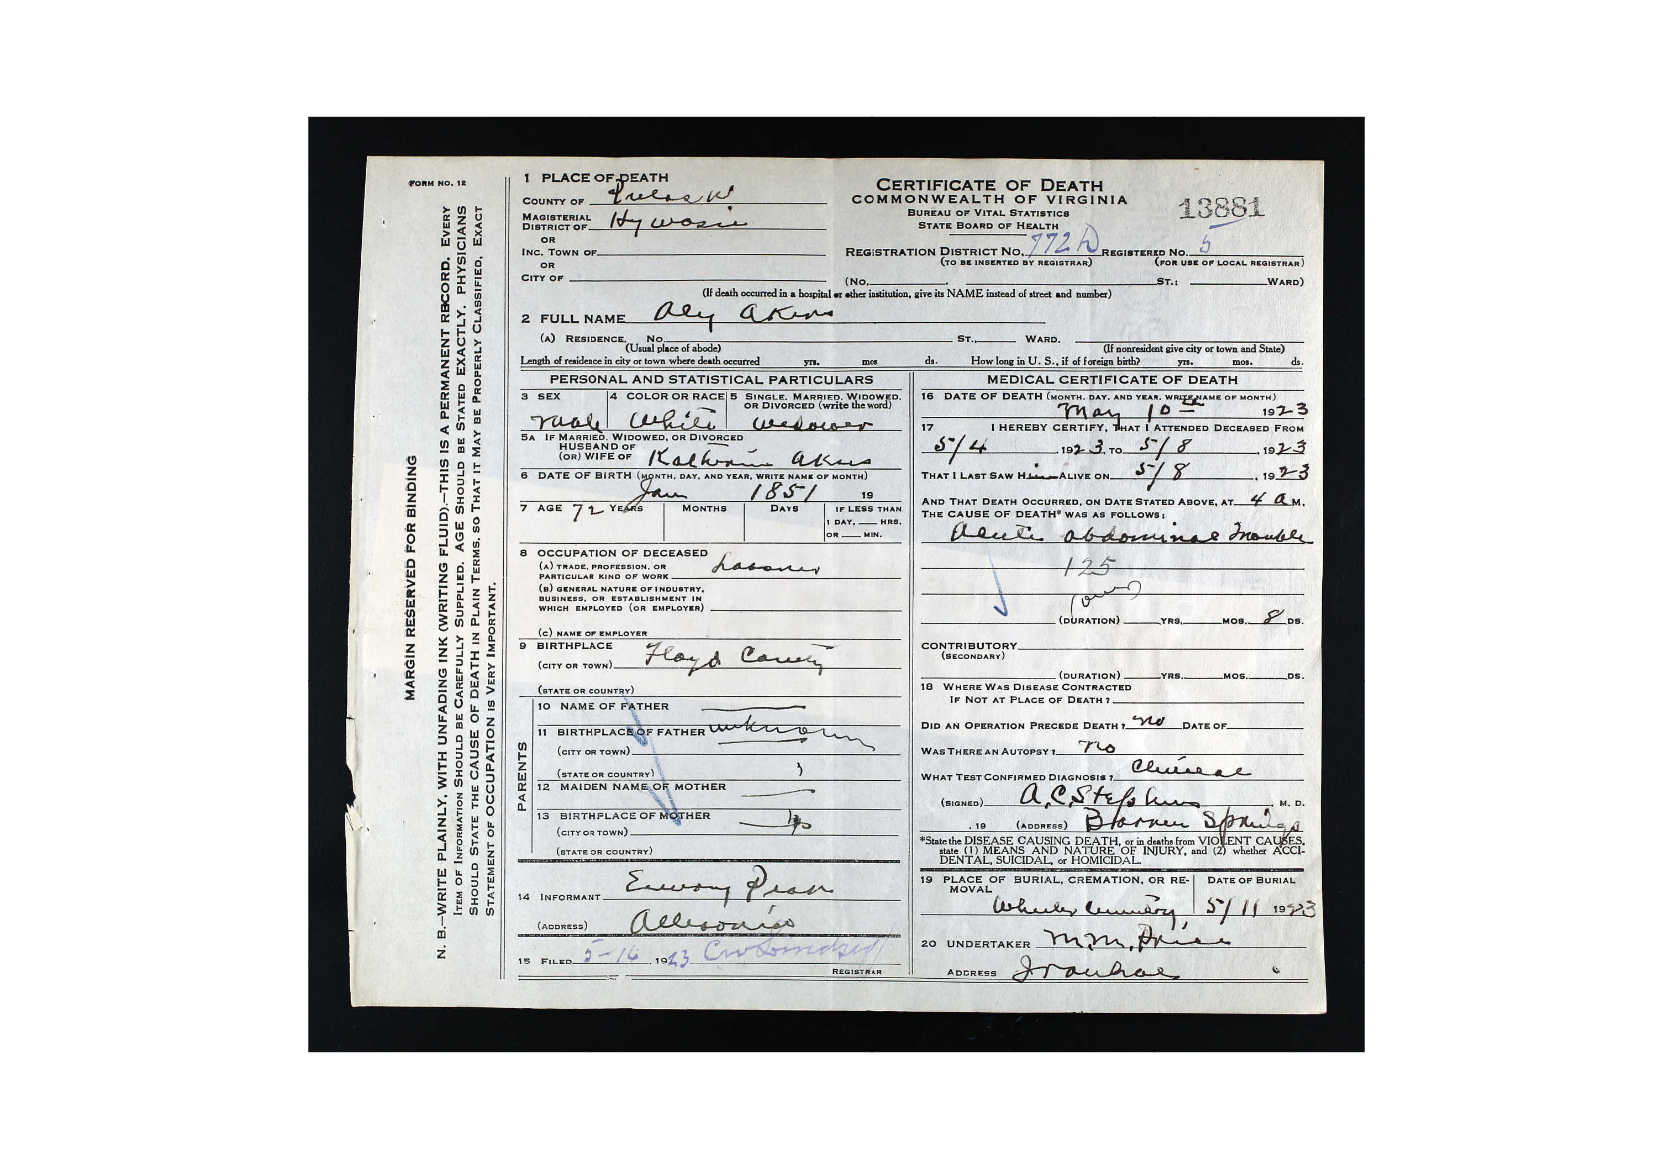 FORM NO. 12
MARGIN RESERVED FOR BINDING
N. B.—WRITE PLAINLY, WITH UNFADING INK (WRITING FLUID).—THIS IS A PERMANENT RECORD. EVERY
ITEM OF INFORMATION SHOULD BE CAREFULLY SUPPLIED. AGE SHOULD BE STATED EXACTLY. PHYSICIANS
SHOULD STATE THE CAUSE OF DEATH IN PLAIN TERMS, SO THAT IT MAY BE PROPERLY CLASSIFIED, EXACT
STATEMENT OF OCCUPATION IS VERY IMPORTANT.
1 PLACE OF DEATH
COUNTY OF Pulaski
MAGISTERIAL
DISTRICT OF Hywasie
OR
INC. TOWN OF
OR
CITY OF
CERTIFICATE OF DEATH
COMMONWEALTH OF VIRGINIA
BUREAU OF VITAL STATISTICS
STATE BOARD OF HEALTH
13881
REGISTRATION DISTRICT NO. 772 D REGISTERED NO. 5
(TO BE INSERTED BY REGISTRAR) (FOR USE OF LOCAL REGISTRAR)
(NO. ST.; WARD)
(If death occurred in a hospital or other institution, give its NAME instead of street and number)
2 FULL NAME Aley Akers
(A) RESIDENCE. NO. ST., WARD.
(Usual place of abode) (If nonresident give city or town and State)
Length of residence in city or town where death occurred yrs. mos ds. How long in U. S., if of foreign birth? yrs. mos. ds.
PERSONAL AND STATISTICAL PARTICULARS
3 SEX 4 COLOR OR RACE 5 SINGLE, MARRIED, WIDOWED,
OR DIVORCED (write the word)
male White widower
5A IF MARRIED, WIDOWED, OR DIVORCED
HUSBAND OF
(OR) WIFE OF Katherine Akers
6 DATE OF BIRTH (MONTH, DAY, AND YEAR, WRITE NAME OF MONTH)
Jan 1851 19
7 AGE 72 YEARS MONTHS DAYS IF LESS THAN
1 DAY, HRS.
OR MIN.
8 OCCUPATION OF DECEASED
(A) TRADE, PROFESSION, OR
PARTICULAR KIND OF WORK Laborer
(B) GENERAL NATURE OF INDUSTRY,
BUSINESS, OR ESTABLISHMENT IN
WHICH EMPLOYED (OR EMPLOYER)
(C) NAME OF EMPLOYER
9 BIRTHPLACE
(CITY OR TOWN) Floyd County
(STATE OR COUNTRY)
PARENTS
10 NAME OF FATHER
11 BIRTHPLACE OF FATHER unknown
(CITY OR TOWN)
(STATE OR COUNTRY)
12 MAIDEN NAME OF MOTHER
13 BIRTHPLACE OF MOTHER
(CITY OR TOWN)
(STATE OR COUNTRY)
14 INFORMANT
(ADDRESS) Allisonia
15 FILED 5-16, 1923
REGISTRAR
MEDICAL CERTIFICATE OF DEATH
16 DATE OF DEATH (MONTH, DAY, AND YEAR, WRITE NAME OF MONTH)
May 10th 1923
17 I HEREBY CERTIFY, THAT I ATTENDED DECEASED FROM
5/4, 1923, TO 5/8, 1923
THAT I LAST SAW Him ALIVE ON 5/8, 1923
AND THAT DEATH OCCURRED, ON DATE STATED ABOVE, AT 4 a M.
THE CAUSE OF DEATH* WAS AS FOLLOWS;
Acute abdominal trouble
125
(over)
(DURATION) YRS. MOS. 8 DS.
CONTRIBUTORY
(SECONDARY)
(DURATION) YRS. MOS. DS.
18 WHERE WAS DISEASE CONTRACTED
IF NOT AT PLACE OF DEATH?
DID AN OPERATION PRECEDE DEATH? No DATE OF
WAS THERE AN AUTOPSY? No
WHAT TEST CONFIRMED DIAGNOSIS? Clinical
(SIGNED) A.C. Stephens M. D.
, 19 (ADDRESS) Barren Springs
*State the DISEASE CAUSING DEATH, or in deaths from VIOLENT CAUSES,
state (1) MEANS AND NATURE OF INJURY, and (2) whether ACCI-
DENTAL, SUICIDAL, or HOMICIDAL.
19 PLACE OF BURIAL, CREMATION, OR RE- DATE OF BURIAL
MOVAL
Wheeler Cemetery 5/11 1923
20 UNDERTAKER M.M. Price
ADDRESS Ivanhoe